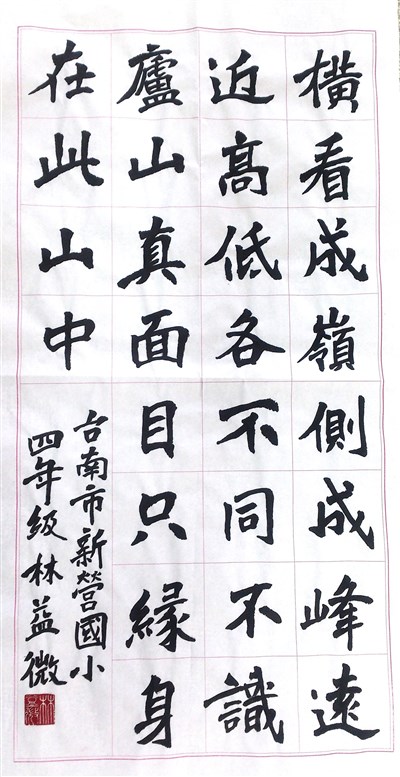 橫看成嶺側成峰遠
近高低各不同不識
廬山真面目只緣身
在此山中
台南市新營國小
四年級林益微